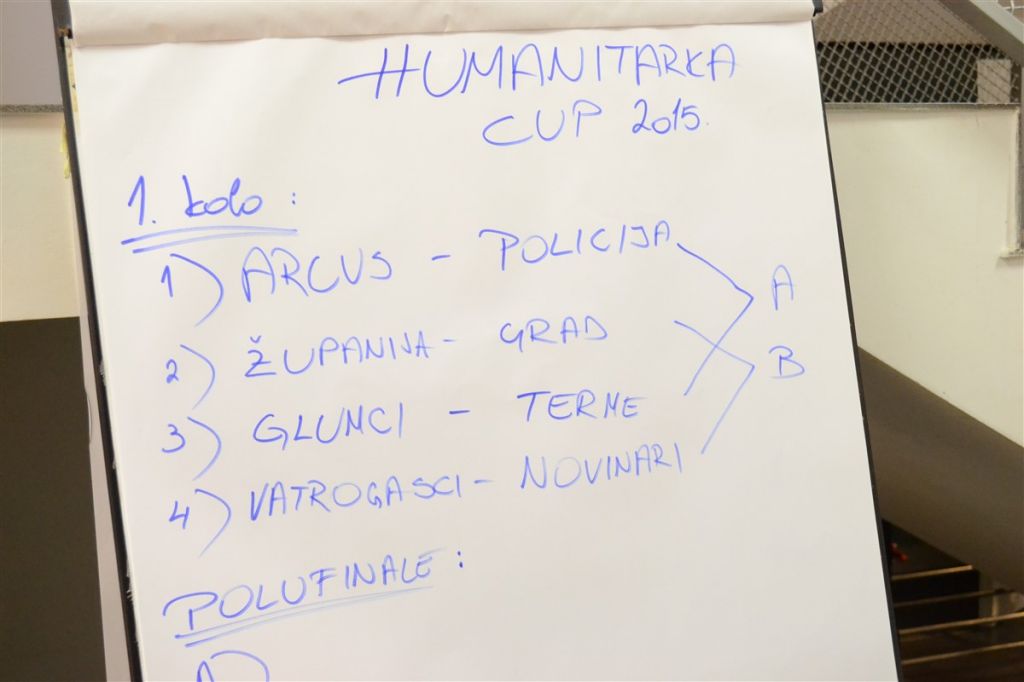 HUMANITARKA
CUP 2015.
1. kolo :
1) ARCUS - POLICIJA
2) ŽUPANIJA - GRAD
A
B
3) GLUMCI - TERME
4) VATROGASCI - NOVINARI
POLUFINALE :
A)